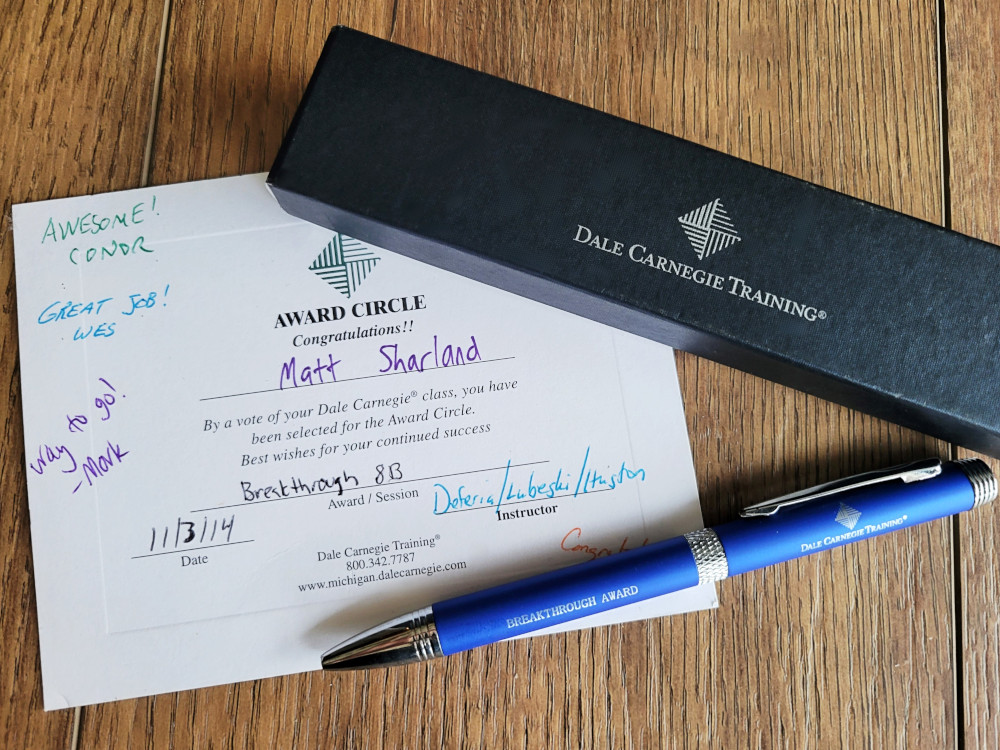 AWESOME!
CONOR
GREAT JOB!
WES
way to go!
-Mark
AWARD CIRCLE
Congratulations!!
Matt Sharland
By a vote of your Dale Carnegie® class, you have
been selected for the Award Circle.
Best wishes for your continued success
Breakthrough 8B
Award / Session
Instructor
11/3/14
Date
Dale Carnegie Training®
800.342.7787
www.michigan.dalecarnegie.com
DALE CARNEGIE TRAINING®
BREAKTHROUGH AWARD
DALE CARNEGIE TRAINING®